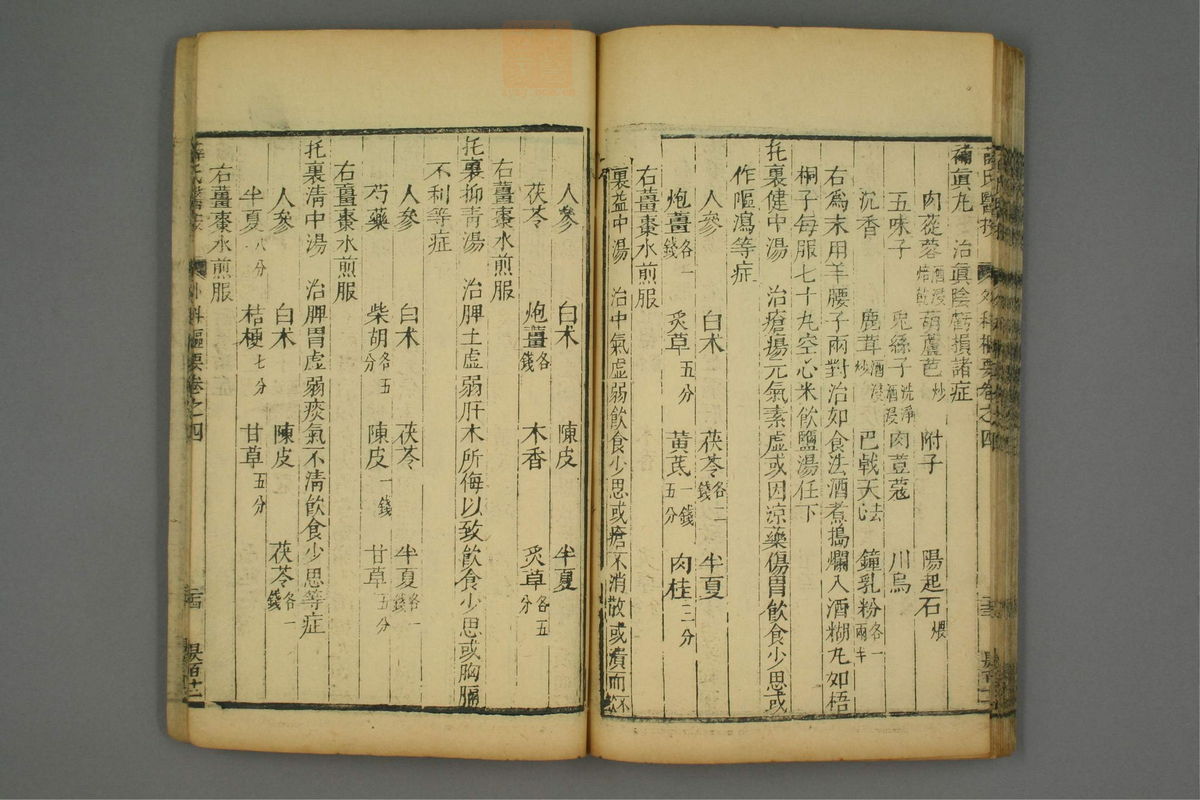 薛氏醫按 外科樞要卷之四
補眞丸 治眞陰虧損諸症
肉蓯蓉酒浸焙乾 葫蘆芭炒 附子 陽起石煨
五味子 兎絲子洗淨酒浸 肉荳蔻 川烏
沉香 鹿茸酒浸炒 巴戟天去心 鐘乳粉各一兩半
右爲末用羊腰子兩對治如食法酒煮搗爛入酒糊丸如梧
桐子每服七十丸空心米飲鹽湯任下
托裏健中湯 治瘡瘍元氣素虛或因凉藥傷胃飲食少思或
作嘔瀉等症
人參 白术 茯苓各二錢 半夏
炮薑各一錢 炙草五分 黃茋一錢五分 肉桂三分
右薑棗水煎服
裏益中湯 治中氣虛弱飲食少思或瘡不消散或潰而不
人參 白术 陳皮 半夏
茯苓 炮薑各錢 木香 炙草各五分
右薑棗水煎服
托裏抑青湯 治脾土虛弱肝木所侮以致飲食少思或胸膈
不利等症
人參 白术 茯苓 半夏各一錢
芍藥 柴胡各五分 陳皮一錢 甘草五分
右薑棗水煎服
托裏淸中湯 治脾胃虛弱痰氣不清飲食少思等症
人參 白术 陳皮 茯苓各一錢
半夏八分 桔梗七分 甘草五分
右薑棗水煎服
外科樞要卷之四